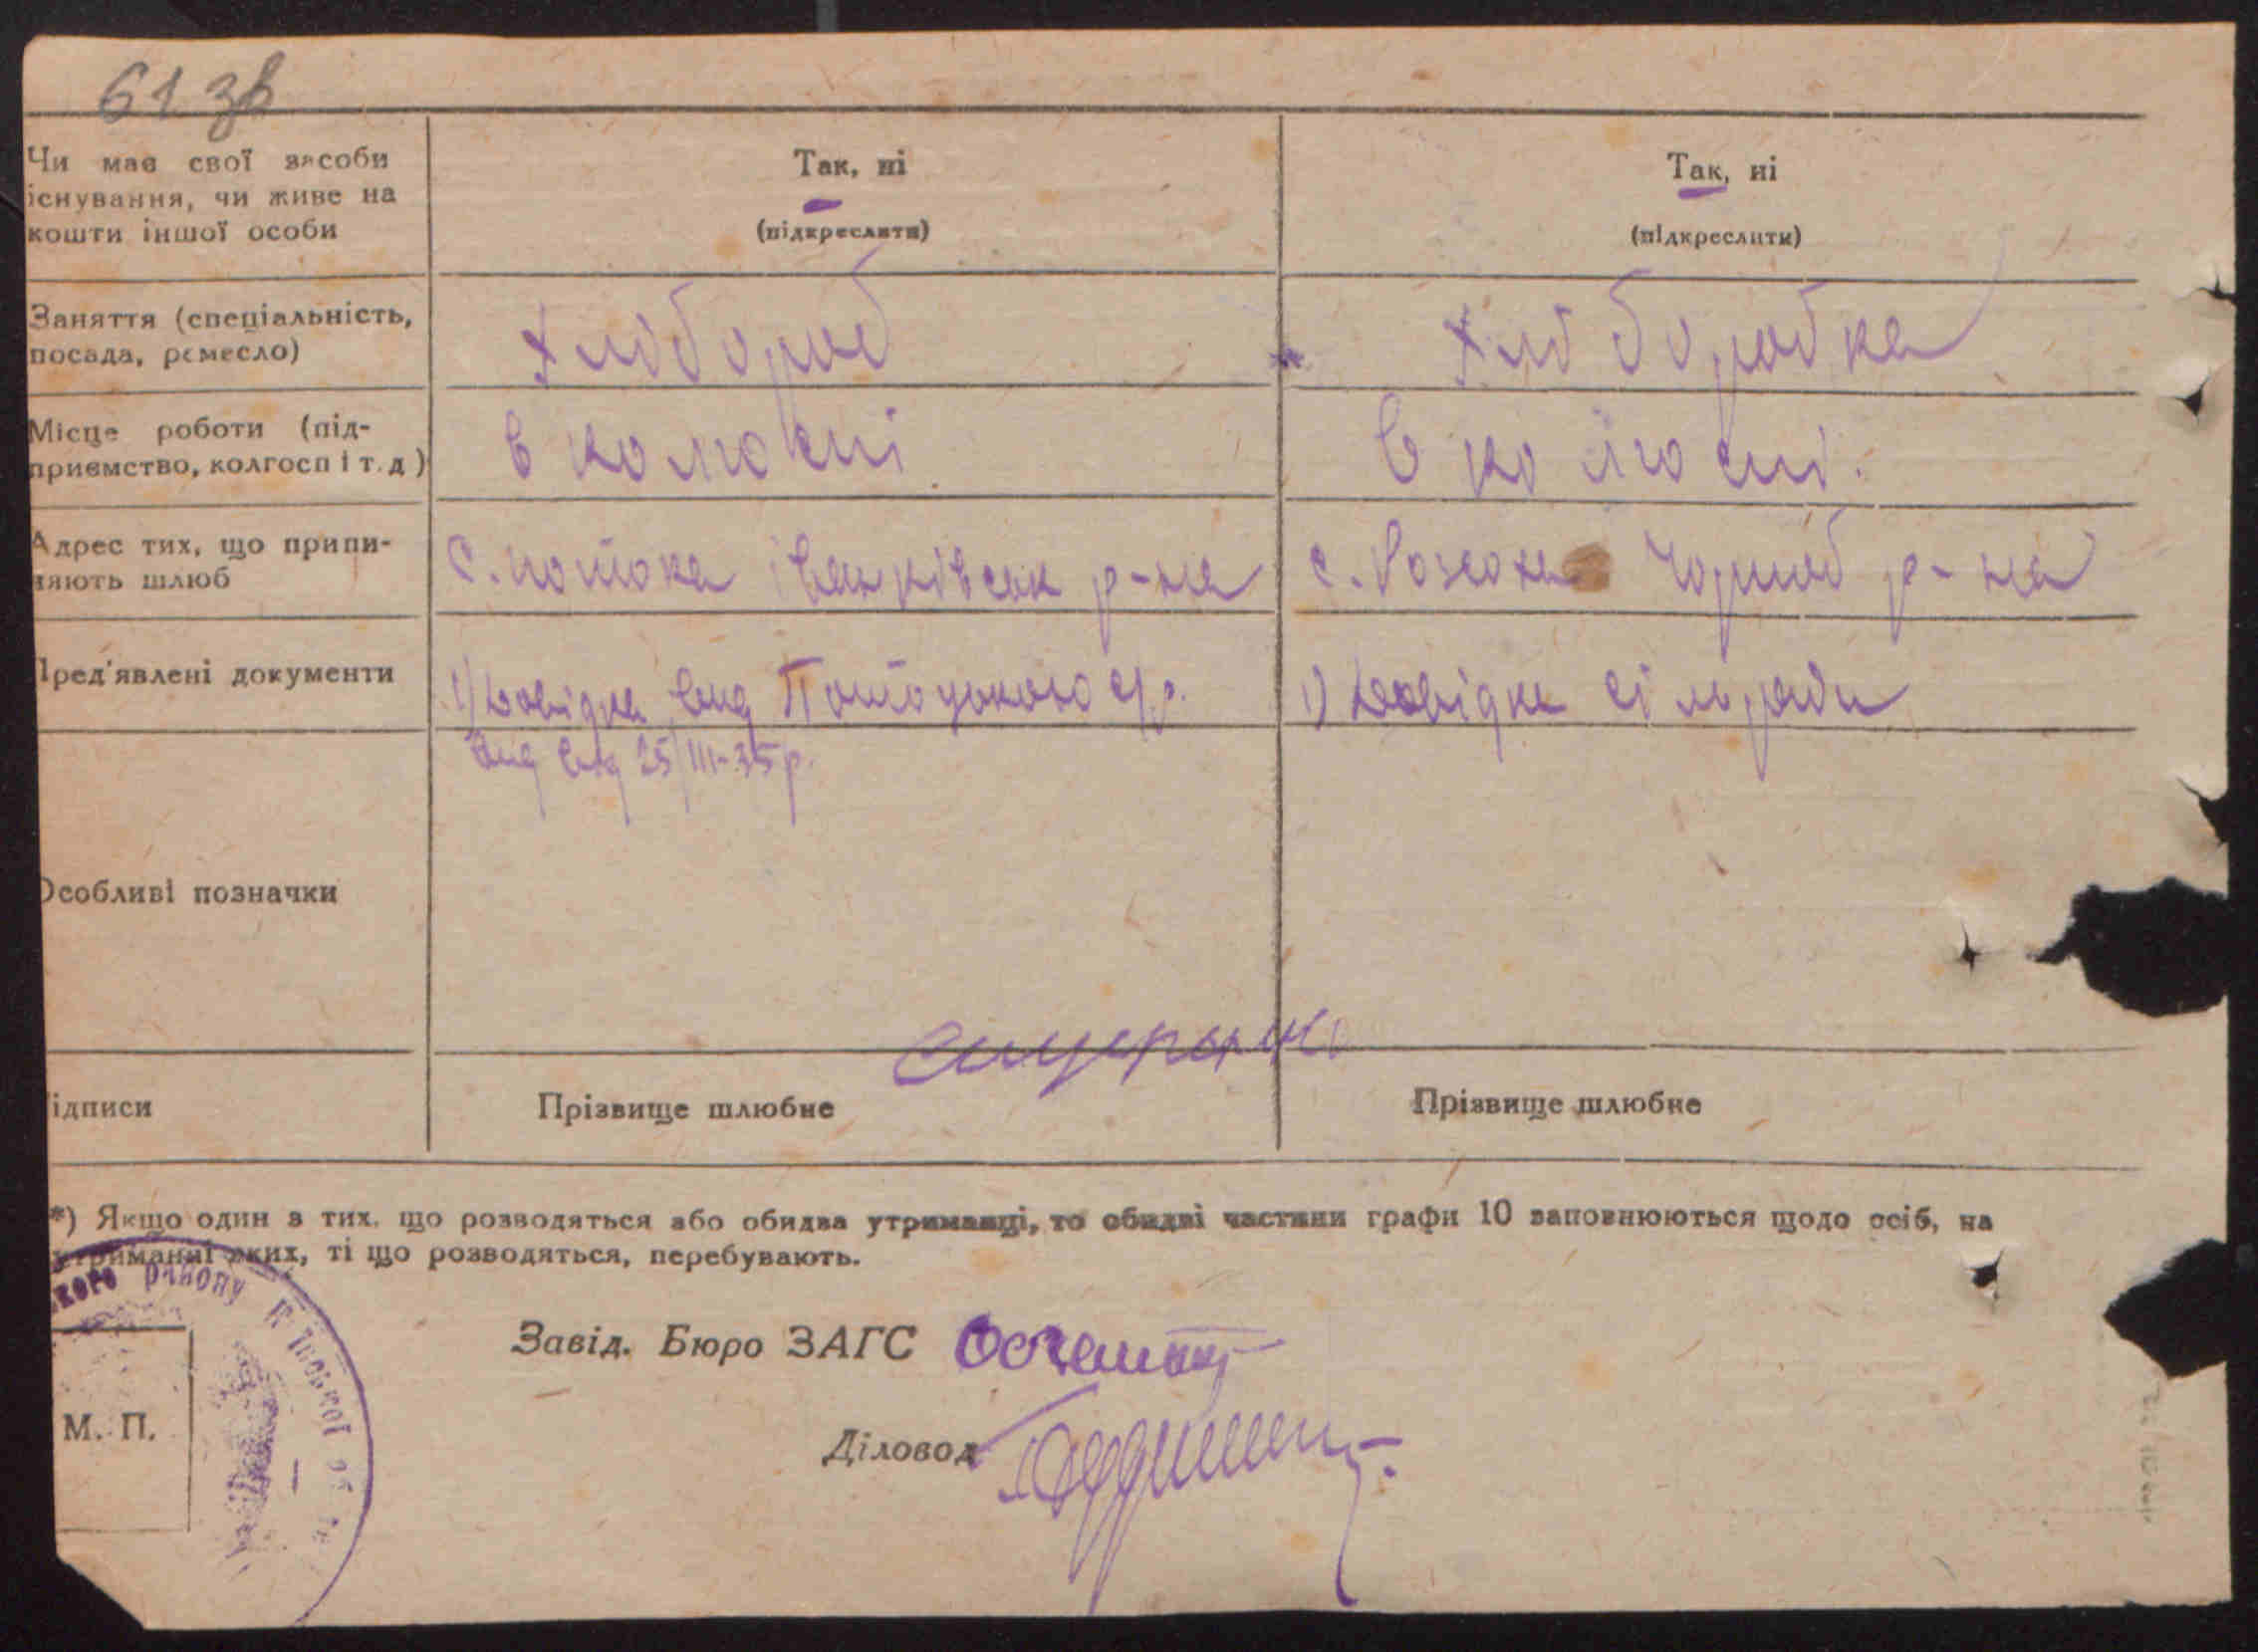 61 зв
Чи має свої засоби
існування, чи живе на
кошти іншої особи
Так, ні
(підкреслити)
Так, ні
(підкреслити)
Заняття (спеціальність,
посада, ремесло)
Хлібороб
Хліборобка
Місце роботи (під-
приємство, колгосп і т. д)
в колгоспі
в колгоспі.
Адрес тих, що припи-
няють шлюб
с. Потока Іванківськ р-на
с. Чорноб р-на
Пред'явлені документи
1) Довідка вид с/р.
1) Довідка сільради
від 25/III-35 р.
Особливі позначки
Підписи
Прізвище шлюбне
Прізвище шлюбне
*) Якщо один з тих, що розводяться або обидва утриманці, то обидві частини графи 10 заповнюються щодо осіб, на
утриманні яких, ті що розводяться, перебувають.
ского району Київської обл
Завід. Бюро ЗАГС
М. П.
Діловод